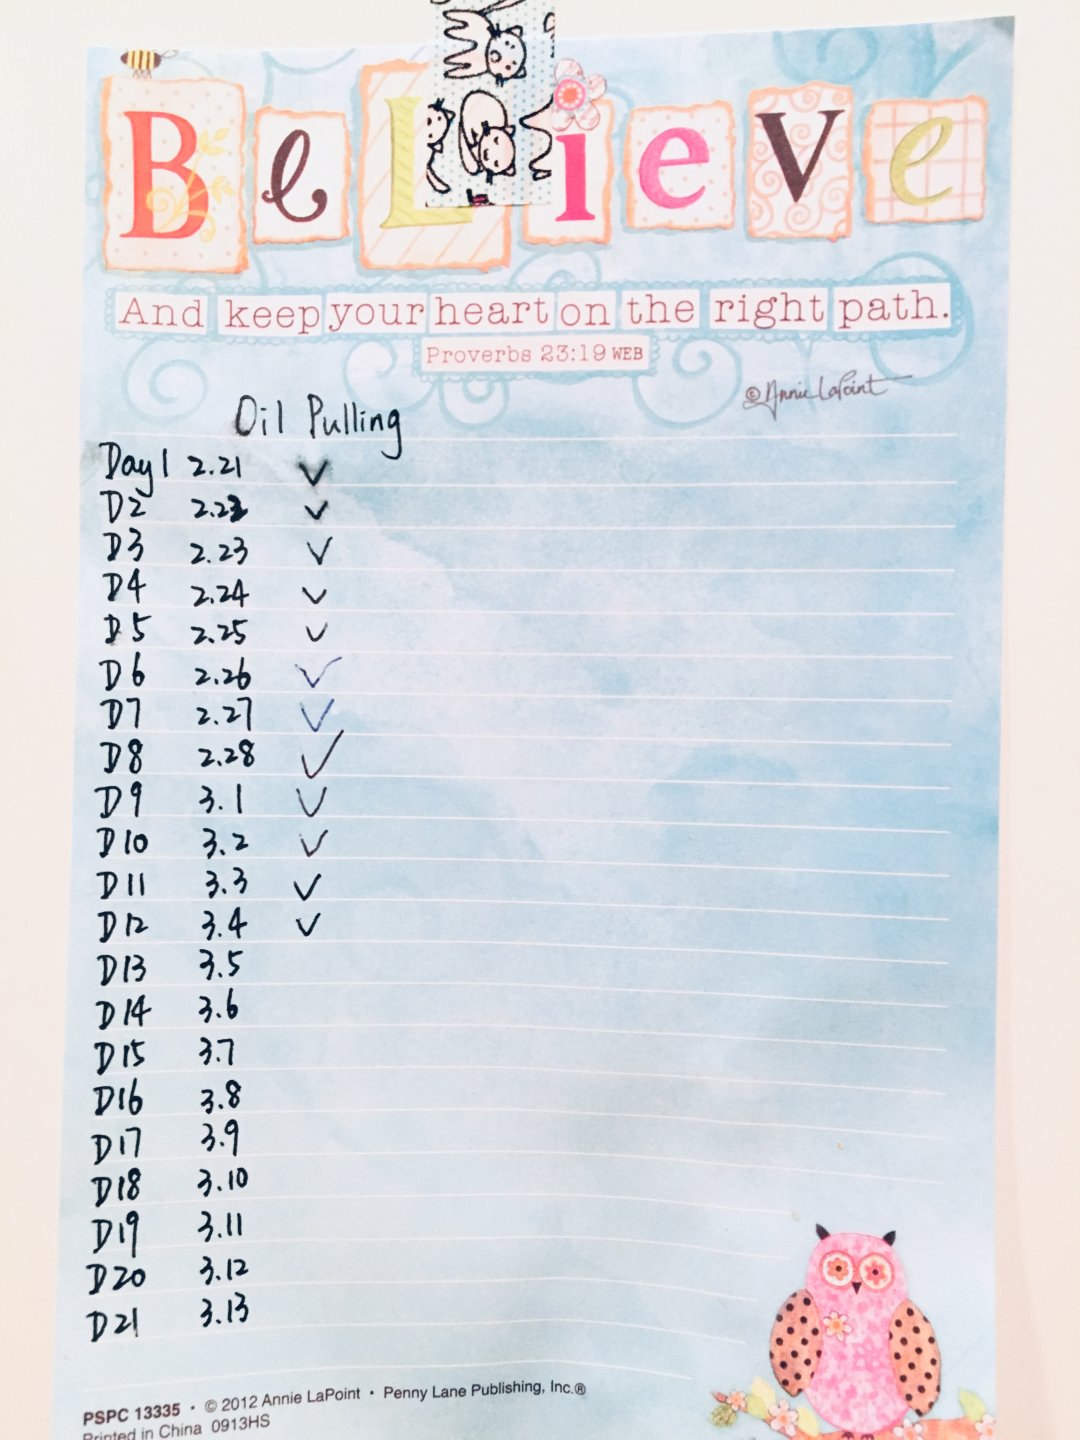 BeLieve
And keep your heart on the right path.
Proverbs 23:19 WEB
© Annie LaPoint
Oil Pulling
Day 1 2.21 ✓
D2 2.22 ✓
D3 2.23 ✓
D4 2.24 ✓
D5 2.25 ✓
D6 2.26 ✓
D7 2.27 ✓
D8 2.28 ✓
D9 3.1 ✓
D10 3.2 ✓
D11 3.3 ✓
D12 3.4 ✓
D13 3.5
D14 3.6
D15 3.7
D16 3.8
D17 3.9
D18 3.10
D19 3.11
D20 3.12
D21 3.13
PSPC 13335 · © 2012 Annie LaPoint · Penny Lane Publishing, Inc.®
Printed in China 0913HS